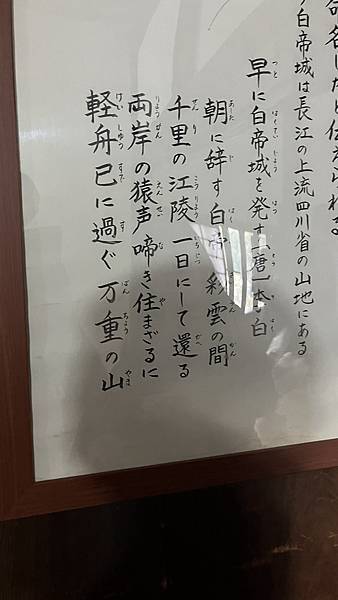 命名したと伝えられる
白帝城は長江の上流四川省の山地にある
早に白帝城を発す 唐 李白
朝に辞す白帝彩雲の間
千里の江陵一日にして還る
両岸の猿声啼き住まざるに
軽舟已に過ぐ万重の山